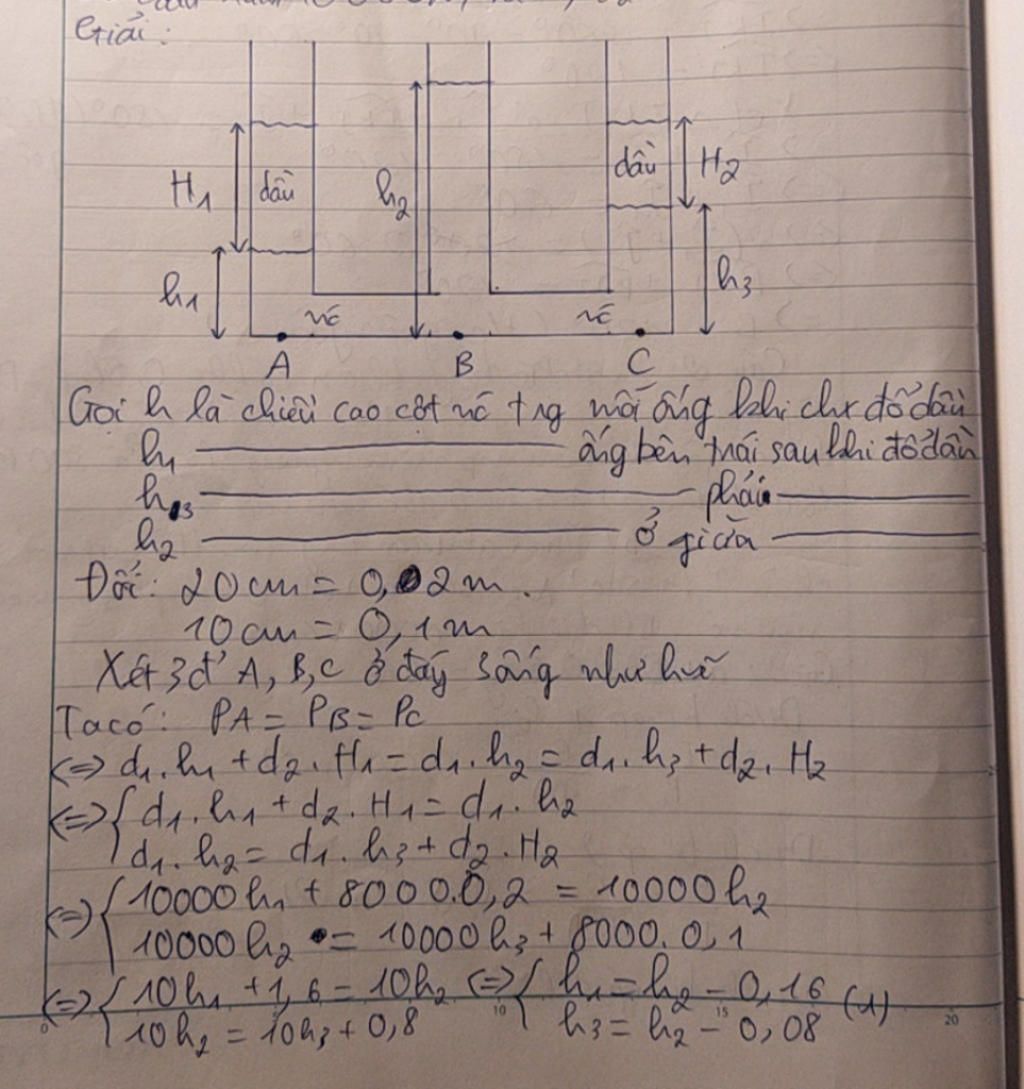 Giải:
H1 dầu h2 dầu H2
h1 nc nc h3
A B C
Gọi h là chiều cao cột nc tng mỗi ống khi chx đổ dầu
h1 ống bên trái sau khi đổ dầu
h3 phải
h2 ở giữa
Đổi: 20cm = 0,02m.
10cm = 0,1m
Xét 3đ' A, B, C ở đáy 3ống như hvẽ
Ta có: PA = PB = PC
<=> d1.h1 + d2.H1 = d1.h2 = d1.h3 + d2.H2
<=> { d1.h1 + d2.H1 = d1.h2
d1.h2 = d1.h3 + d2.H2
<=> { 10000h1 + 8000.0,2 = 10000h2
10000h2 = 10000h3 + 8000.0,1
<=> { 10h1 + 1,6 = 10h2 <=> { h1 = h2 - 0,16 (1)
10h2 = 10h3 + 0,8 h3 = h2 - 0,08
0 10 15 20